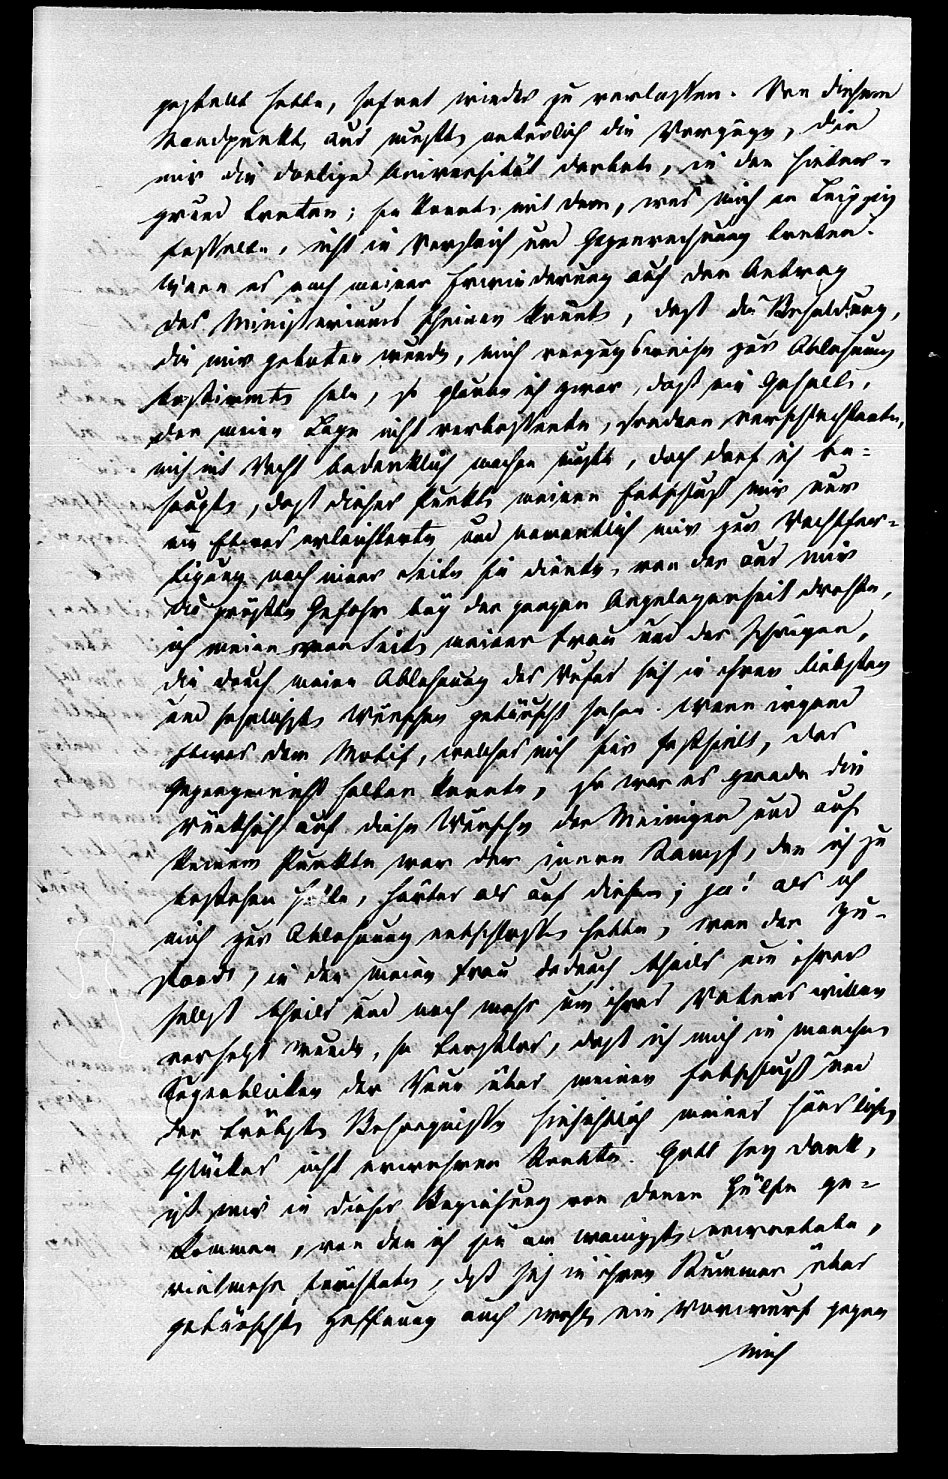 gestellt hatte, sofort wieder zu verlassen. Von diesem
Standpunkte aus mußten natürlich die Vorzüge, die
mir die dortige Universität darbot, in den Hinter-
grund treten; sie konnten mit dem, was mich an Leipzig
fesselte, nicht in Vergleich und Gegenrechnung treten.
Wenn es nach meiner Erwiederung auf den Antrag
des Ministeriums scheinen konnte, daß die Besoldung,
die mir geboten wurde, mich vorzugsweise zur Ablehnung
bestimmt habe, so glaube ich zwar, daß ein Gehalt,
der meine Lage nicht verbesserte, sondern verschlechterte,
mich mit Recht bedenklich machen mußte, doch darf ich be-
haupten, daß dieser Punkt meinen Entschluß mir nur
um Etwas erleichterte und namentlich mir zur Rechtfer-
tigung nach einer Seite hin diente, von der aus mir
die größte Gefahr bey der ganzen Angelegenheit drohte,
ich meine von Seiten meiner Frau und der Ihrigen,
die durch meine Ablehnung des Rufes sich in ihren liebsten
und Wünschen getäuscht sahen. Wenn irgend
Etwas dem Motif, welches mich hier festhielt, das
Gegengewicht halten konnte, so war es gerade die
Rücksicht auf diese Wünsche der Meinigen und auf
keinem Punkte war der innere Kampf, den ich zu
bestehen hatte, härter als auf diesem; ja! als ich
mich zur Ablehnung entschlossen hatte, war der Zu-
stand, in den meine Frau dadurch theils um ihrer
selbst theils und noch mehr um ihres Vaters willen
versetzt wurde, so trostlos, daß ich mich in manchen
Augenblicken der Reue über meinen Entschluß und
der trübsten Besorgnisse hinsichtlich meines häuslichen
Glückes nicht erwehren konnte. Gott sey Dank,
ist mir in dieser Beziehung von denen Hülfe ge-
kommen, von den ich sie am wenigsten erwartete,
vielmehr fürchtete, daß sich in ihren Kummer über
getäuschte Hoffnung auch wohl ein Vorwurf gegen
mich